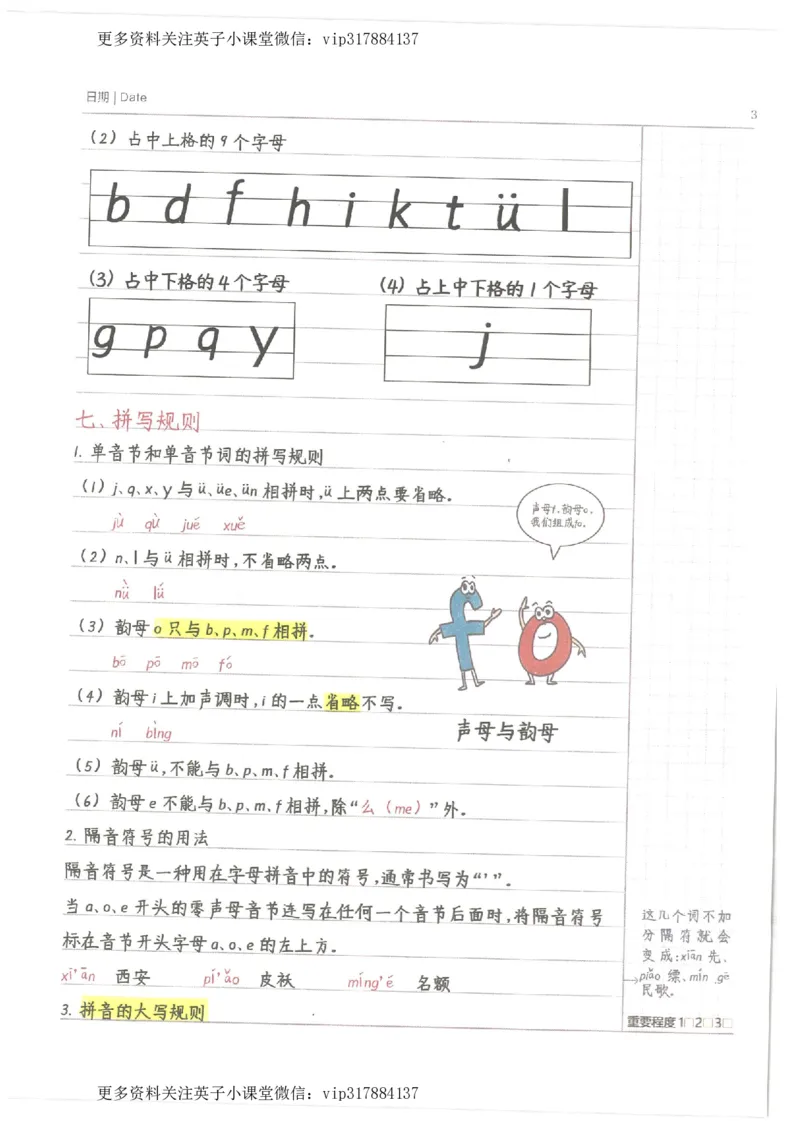 更多资料关注英子小课堂微信：vip317884137
日期 | Date
3
(2) 占中上格的9个字母
b d f h i k t ü l
(3) 占中下格的4个字母
(4) 占上中下格的1个字母
g p q y
j
七、拼写规则
1. 单音节和单音节词的拼写规则
(1) j、q、x、y与ü、üe、ün相拼时,ü上两点要省略。
jù qù jué xuě
声母f,韵母o,
我们组成fo。
(2) n、l与ü相拼时,不省略两点。
nǜ lǘ
(3) 韵母o只与b、p、m、f相拼。
bō pō mō fó
(4) 韵母i上加声调时,i的一点省略不写。
ní bìng
声母与韵母
(5) 韵母ü,不能与b、p、m、f相拼。
(6) 韵母e不能与b、p、m、f相拼,除“么(me)”外。
2. 隔音符号的用法
隔音符号是一种用在字母拼音中的符号,通常书写为“’”。
当a、o、e开头的零声母音节连写在任何一个音节后面时,将隔音符号
标在音节开头字母a、o、e的左上方。
xī’ān 西安 pí’ǎo 皮袄 míng’é 名额
这几个词不加
分隔符就会
变成:xiān先、
piǎo 缥、mín gē
民歌。
3. 拼音的大写规则
重要程度 1□2□3□
更多资料关注英子小课堂微信：vip317884137